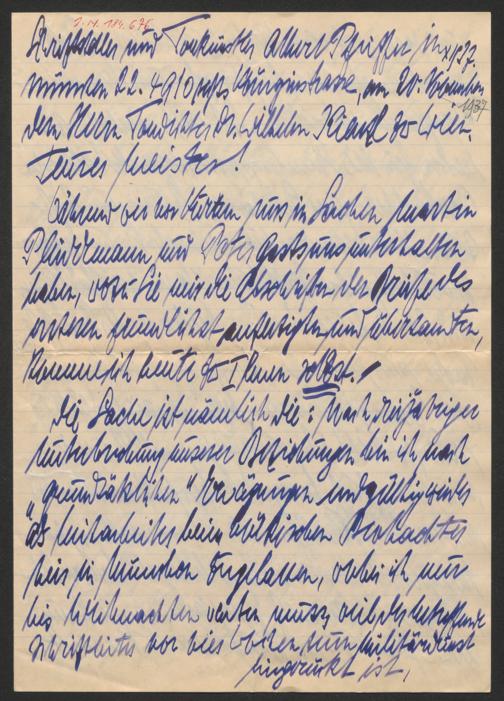 J.N. 184.676
Schriftsteller und Tonkünstler Albert Pfeiffer in
München 22. 49/0 rechts Königinstrasse, am 20. November
1937
dem Herrn Tondichter Dr. Wilhelm Kienzl zu Wien.
Teurer Meister!
Während wir vor Kurzem uns in Sachen Martin
Plüddemann und Peter Gasts uns unterhalten
haben, wozu Sie mir die Abschriften der Briefe des
ersteren freundlichst anfertigten und übersandten,
komme ich heute zu Ihnen selbst.
Die Sache ist nämlich die: Nach dreijähriger
Unterbrechung unserer Beziehungen bin ich nach
„grundsätzlichen" Erwägungen endgültig wieder
als Mitarbeiter beim Völkischen Beobachter
hier in München zugelassen, wobei ich nur
bis Weihnachten warten muss, weil der betreffende
Schriftleiter vor vier Wochen zum Militärdienst
eingerückt ist,